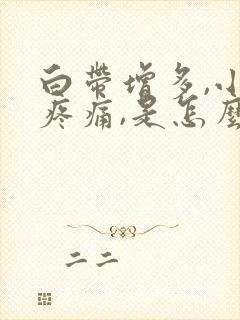 白带增多,小
疼痛,是怎麽
二二